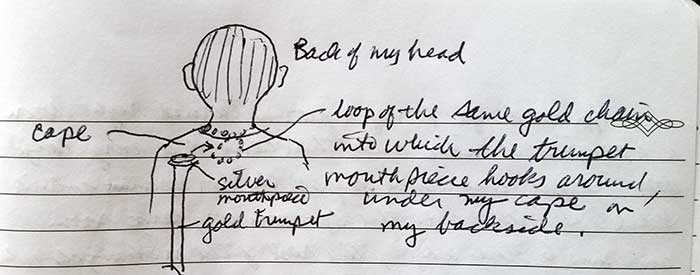 Back of my head
cape
loop of the same gold chain
into which the trumpet
mouthpiece hooks around,
under my cape on
my backside.
silver
mouthpiece
gold trumpet